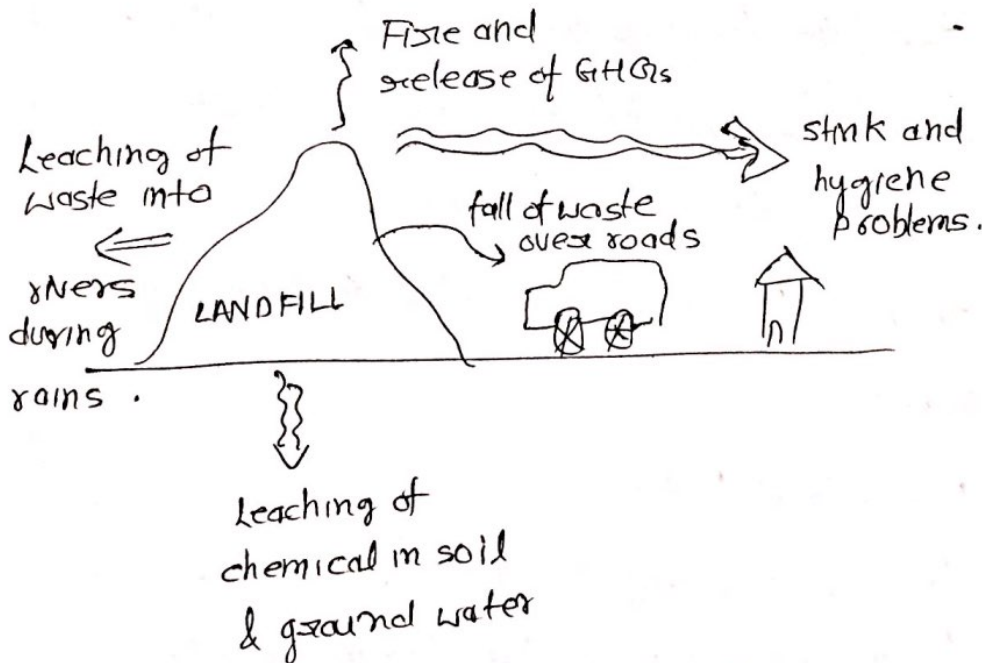 Fire and
release of GHGs
Leaching of
waste into
rivers
during
rains.
stink and
hygiene
problems.
fall of waste
over roads
LANDFILL
Leaching of
chemical in soil
& ground water